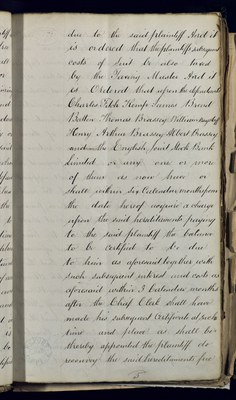 due to the said plaintiff And it
is ordered that the plaintiffs subsequent
costs of suit be also taxed
by the Taxing Master And it
is Ordered that upon the defendants
Charles Fitch Kemp James Broad
Betton Thomas Brassey William
Henry Arthur Brassey Albert Brassey
and the English Joint Stock Bank
Limited or any one or more
of them as now been or
shall within six Calendar months from
the date hereof acquire a charge
upon the said hereditaments paying
to the said plaintiff the balance
to be certified to be due
to him as aforesaid together with
such subsequent interest and costs as
aforesaid within 3 Calendar months
after the Chief Clerk shall have
made his subsequent Certificate at such
time and place as shall be
thereby appointed the plaintiff do
reconvey the said hereditaments free